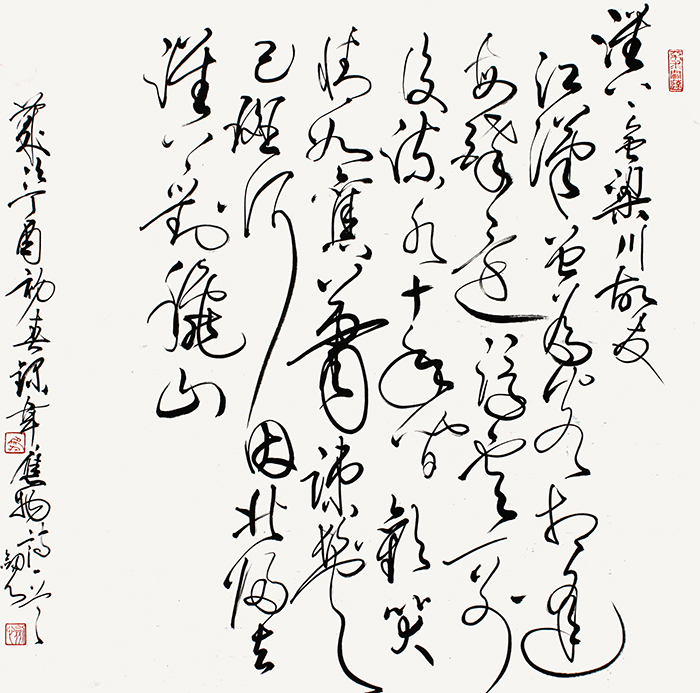 淮上喜會梁川故友
江漢曾為客相逢
每醉還浮雲一別
後流水十年間歡笑
情如舊蕭疏鬢
已斑何因北歸去
淮上對龝山
歲次丁酉初春錄韋應物詩一首